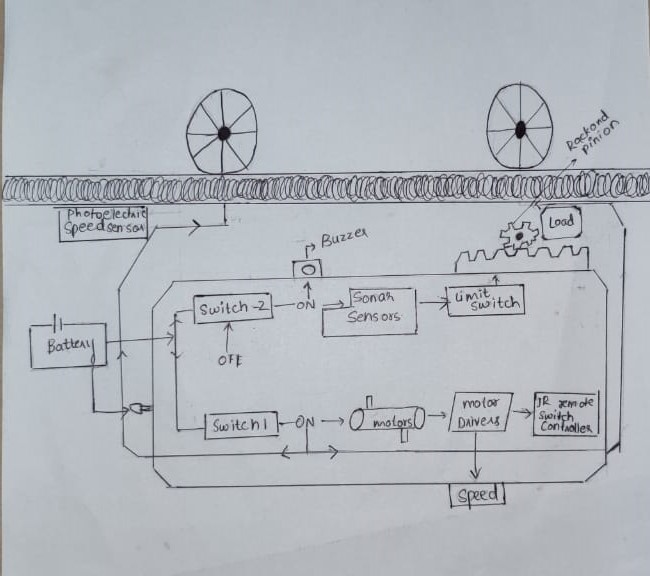 Rack and
pinion
Photoelectric
Speed sensor
Load
Buzzer
Switch-2
ON
Sonar
Sensors
Limit
Switch
OFF
Battery
Switch 1
ON
motors
motor
DRIVERS
IR remote
Switch
Controller
Speed